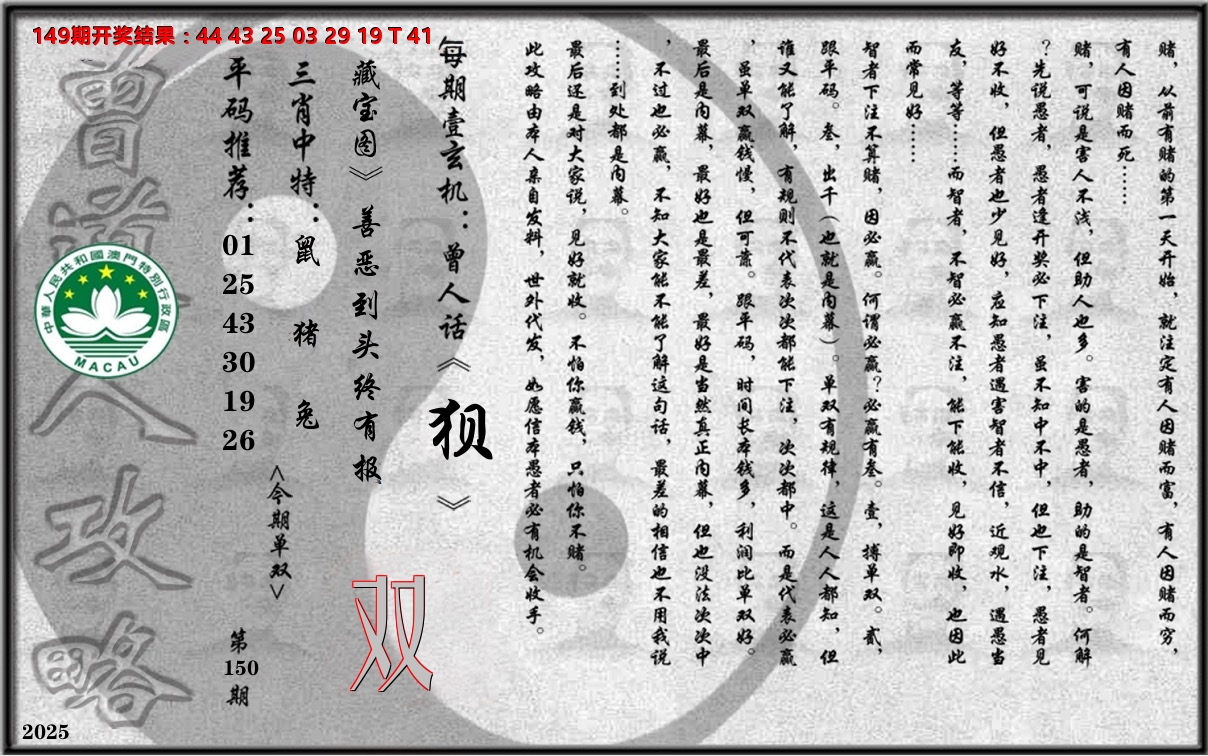 149期开奖结果：44 43 25 03 29 19 T 41
赌，从前有赌的第一天开始，就注定有人因赌而富，有人因赌而穷，
有人因赌而死……
赌，可说是害人不浅，但助人也多。害的是愚者，助的是智者。何解
？先说愚者，愚者逢开奖必下注，虽不知中不中，但也下注，愚者见
好不收，但愚者也少见好，应知愚者遇害智者不信，近观水，遇愚当
友，等等……而智者，不智必赢不注，能下能收，见好即收，也因此
而常见好……
智者下注不算赌，因必赢。何谓必赢？必赢有叁。壹，搏单双。贰，
跟平码。叁，出千（也就是内幕）。单双有规律，这是人人都知，但
谁又能了解，有规则不代表次次都能下注，次次都中。而是代表必赢
，虽单双赢钱慢，但可靠。跟平码，时间长本钱多，利润比单双好。
最后是内幕，最好也是最差，最好是当然真正内幕，但也没法次次中
，不过也必赢，不知大家能不能了解这句话，最差的相信也不用我说
……到处都是内幕。
最后还是对大家说，见好就收。不怕你赢钱，只怕你不赌。
此攻略由本人亲自发料，世外代发，如愿信本愚者必有机会收手。
每期壹玄机：曾人话《狈》
藏宝图》善恶到头终有报
三肖中特：鼠 猪 兔
<今期单双>
双
平码推荐：01 25 43 30 19 26
第150期
曾道人攻略
中華人民共和國澳門特別行政區
MACAU
2025